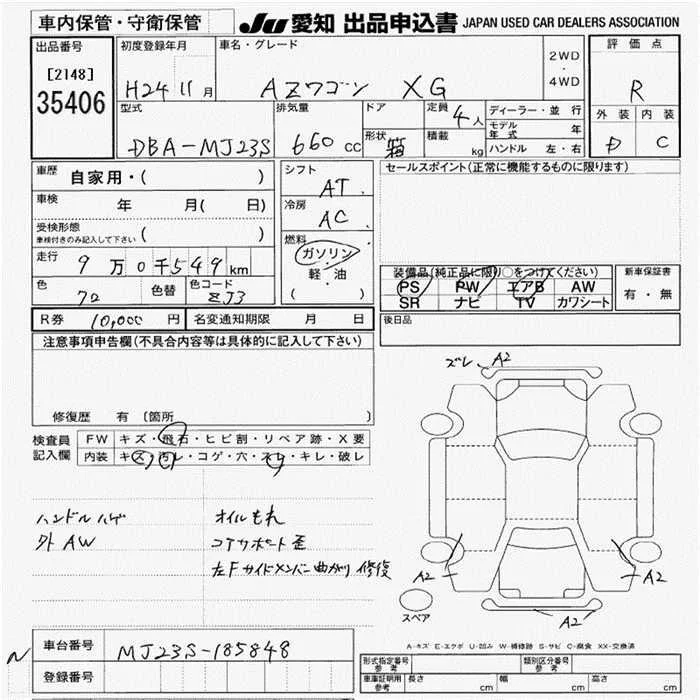 車内保管・守衛保管
JU 愛知 出品申込書 JAPAN USED CAR DEALERS ASSOCIATION
出品番号
[2148]
35406
初度登録年月
H24 11月
車名・グレード
AZワゴン XG
2WD
・
4WD
評価点
R
外装 内装
D C
型式
DBA-MJ23S
排気量
660 CC
ドア
形状
箱
定員 4人
積載 kg
ディーラー・並行
モデル年式 年
ハンドル 左・右
車歴 自家用・( )
車検 年 月( 日)
受検形態
車検付きのみ記入して下さい ( )
走行 9万0千549km
色 色替 色コード
ZJ3
シフト
AT
冷房
AC
燃料
ガソリン
・
軽・油
( )
セールスポイント(正常に機能するものに限ります)
装備品(純正品に限り○をつけてください)
PS PW エアB AW
SR ナビ TV カワシート
新車保証書
有・無
R券 10,000 円 名変通知期限 月 日
後日品
注意事項申告欄(不具合内容等は具体的に記入して下さい)
修復歴 有 〔箇所 〕
検査員
記入欄
FW キズ・飛石・ヒビ割・リペア跡・X要
内装 キズ・汚レ・コゲ・穴・スレ・キレ・破レ
ハンドルハゲ
外AW
オイルもれ
コアサポート歪
左Fサイドメンバー曲がり 修復
ズレ、A2
A2
A2
A2
スペア
A-キズ E-エクボ U-凹み W-補修跡 S-サビ C-腐食 XX-交換済
N
車台番号 MJ23S-185848
登録番号
型式指定番号
参考
類別区分番号
参考
車庫証明用
参考
長さ cm 幅 cm 高さ cm